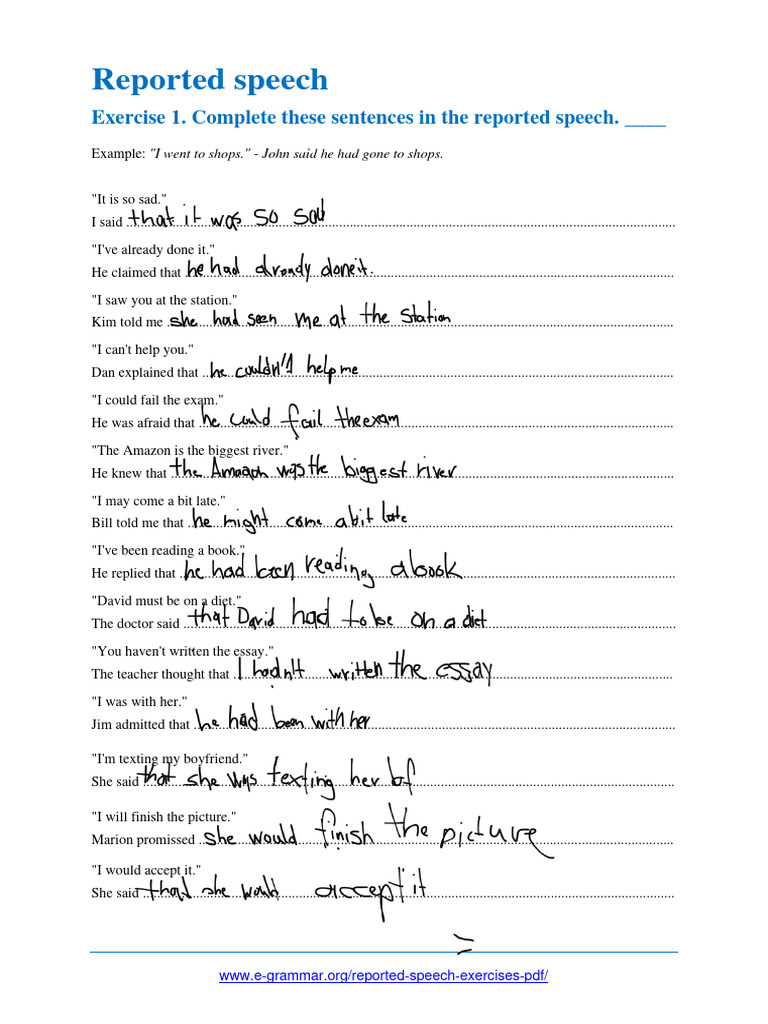 Reported speech
Exercise 1. Complete these sentences in the reported speech. ____
Example: "I went to shops." - John said he had gone to shops.
"It is so sad."
I said that it was so sad
"I've already done it."
He claimed that he had already done it.
"I saw you at the station."
Kim told me she had seen me at the station
"I can't help you."
Dan explained that he couldn't help me
"I could fail the exam."
He was afraid that he could fail the exam
"The Amazon is the biggest river."
He knew that the Amazon was the biggest river
"I may come a bit late."
Bill told me that he might come a bit late
"I've been reading a book."
He replied that he had been reading a book
"David must be on a diet."
The doctor said that David had to be on a diet
"You haven't written the essay."
The teacher thought that I hadn't written the essay
"I was with her."
Jim admitted that he had been with her
"I'm texting my boyfriend."
She said that she was texting her bf
"I will finish the picture."
Marion promissed she would finish the picture
"I would accept it."
She said that she would accept it
www.e-grammar.org/reported-speech-exercises-pdf/